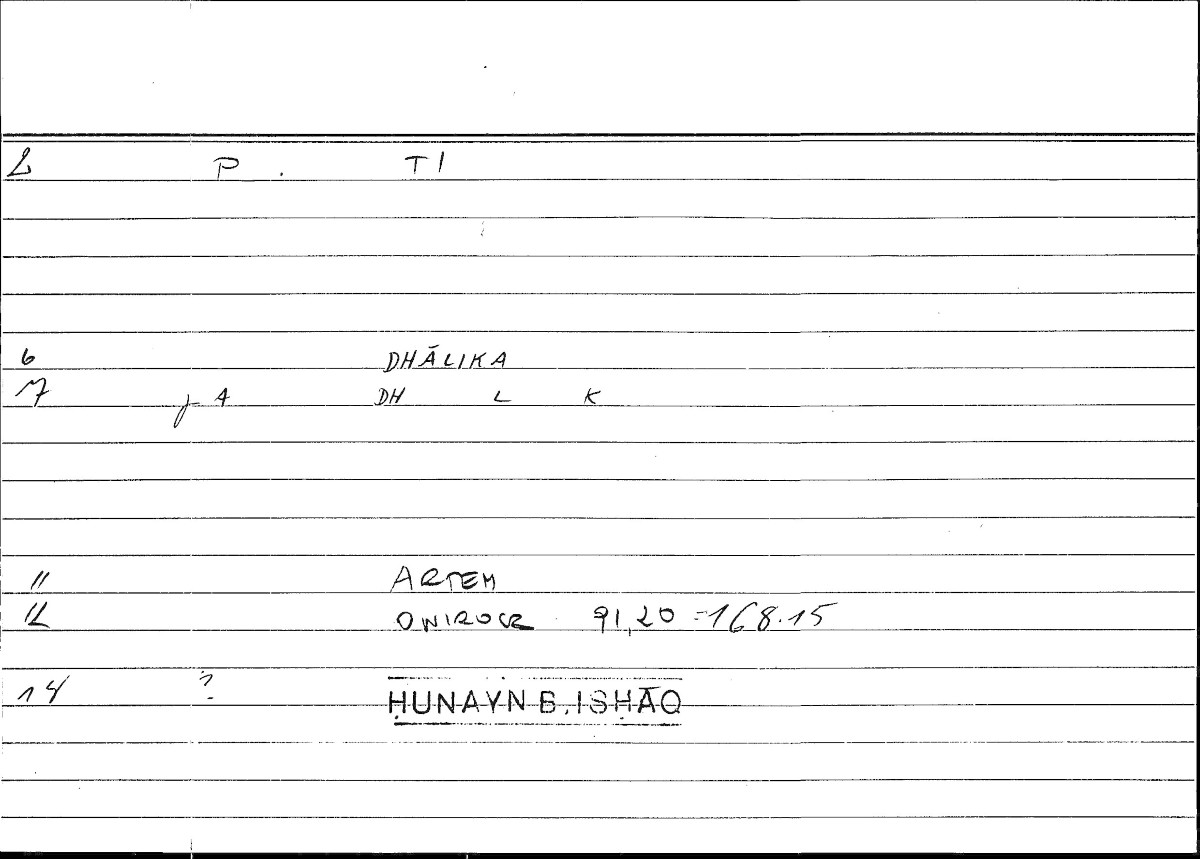 2 P . TI
6 DHĀLIKA
7 A DH L K
11 ARTEM
12 ONIROCR 91,20 = 168.15
14 ? ḤUNAYN B. ISḤĀQ